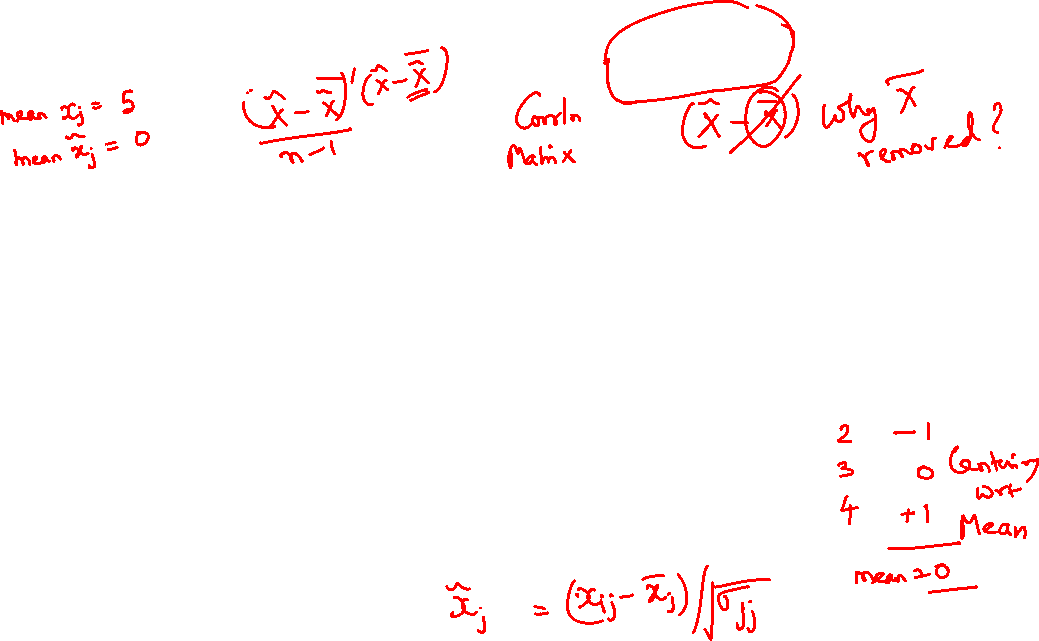 mean xⱼ = 5
mean x̂ⱼ = 0
(x̂ - x̄̂)' (x̂ - x̄̂)
n-1
Corrln
Matrix
(x̂ - x̄) why x̄
removed?
2 -1
3 0 Centering
4 +1 wrt
Mean
mean = 0
x̂ⱼ = (xᵢⱼ - x̄ⱼ) / √σⱼⱼ